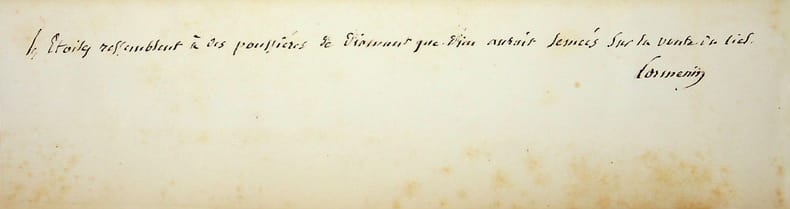 les Etoiles ressemblent à des poussières de Diamant que Dieu aurait semées sur la voute du ciel.
Cormenin